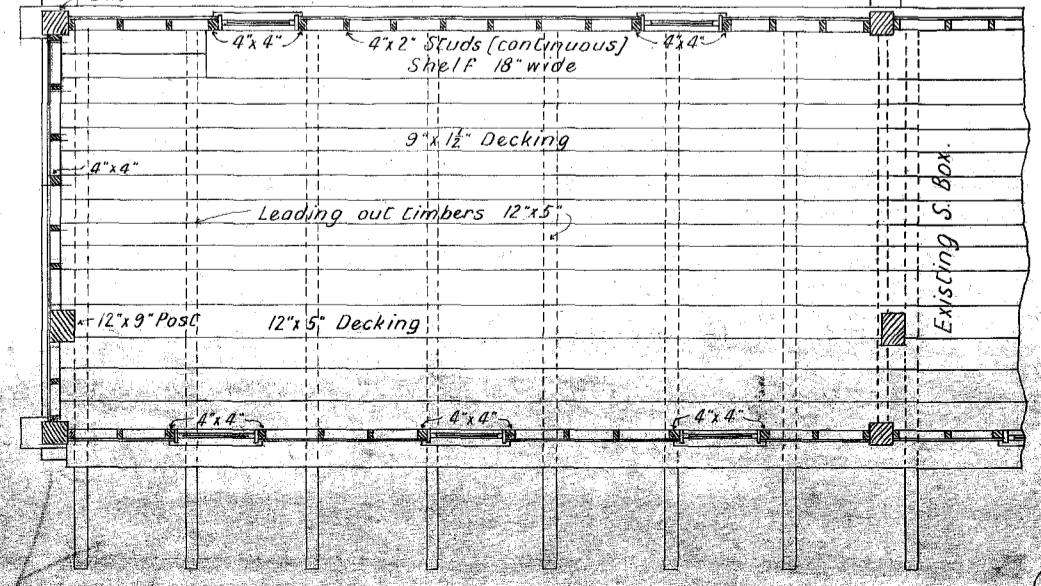 4"x4"
4"x2" Studs [continuous]
4"x4"
Shelf 18" wide
9"x1½" Decking
4"x4"
Leading out timbers 12"x5"
Existing S. Box.
12"x9" Post
12"x5" Decking
4"x4"
4"x4"
4"x4"